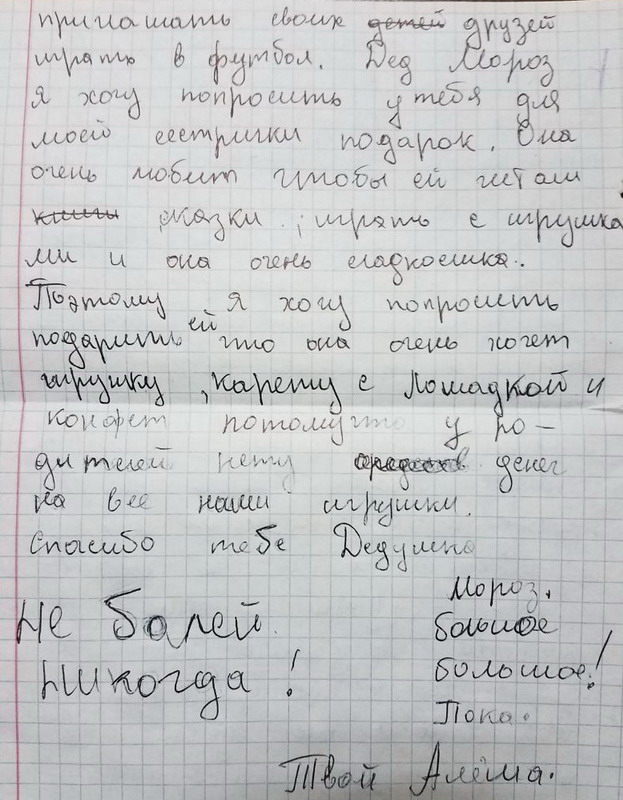 приглашать своих детей друзей
играть в футбол. Дед Мороз
я хочу попросить у тебя для
моей сестрички подарок. Она
очень любит чтобы ей читали
книги сказки, играть с игрушка
ми и она очень сладкоешка.
Поэтому я хочу попросить
подарить ей что она очень хочет
игрушку, карету с лошадкой и
конфет потомучто у ро-
дителей нету денег
на все наши игрушки.
Спасибо тебе Дедушка
Мороз.
Не болей большое
никогда! большое!
Пока.
Твой Алёша.